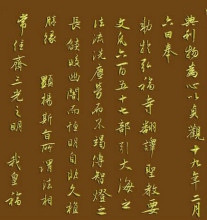 典利物為心以貞觀十九年二月
六日奉
敕於弘福寺翻譯聖教要
文凡六百五十七部引大海之
法流洗塵勞而不竭傳智燈之
長焰皎幽闇而恒明自非久植
勝緣何以顯揚斯旨所謂法相
常住齊三光之明我皇福